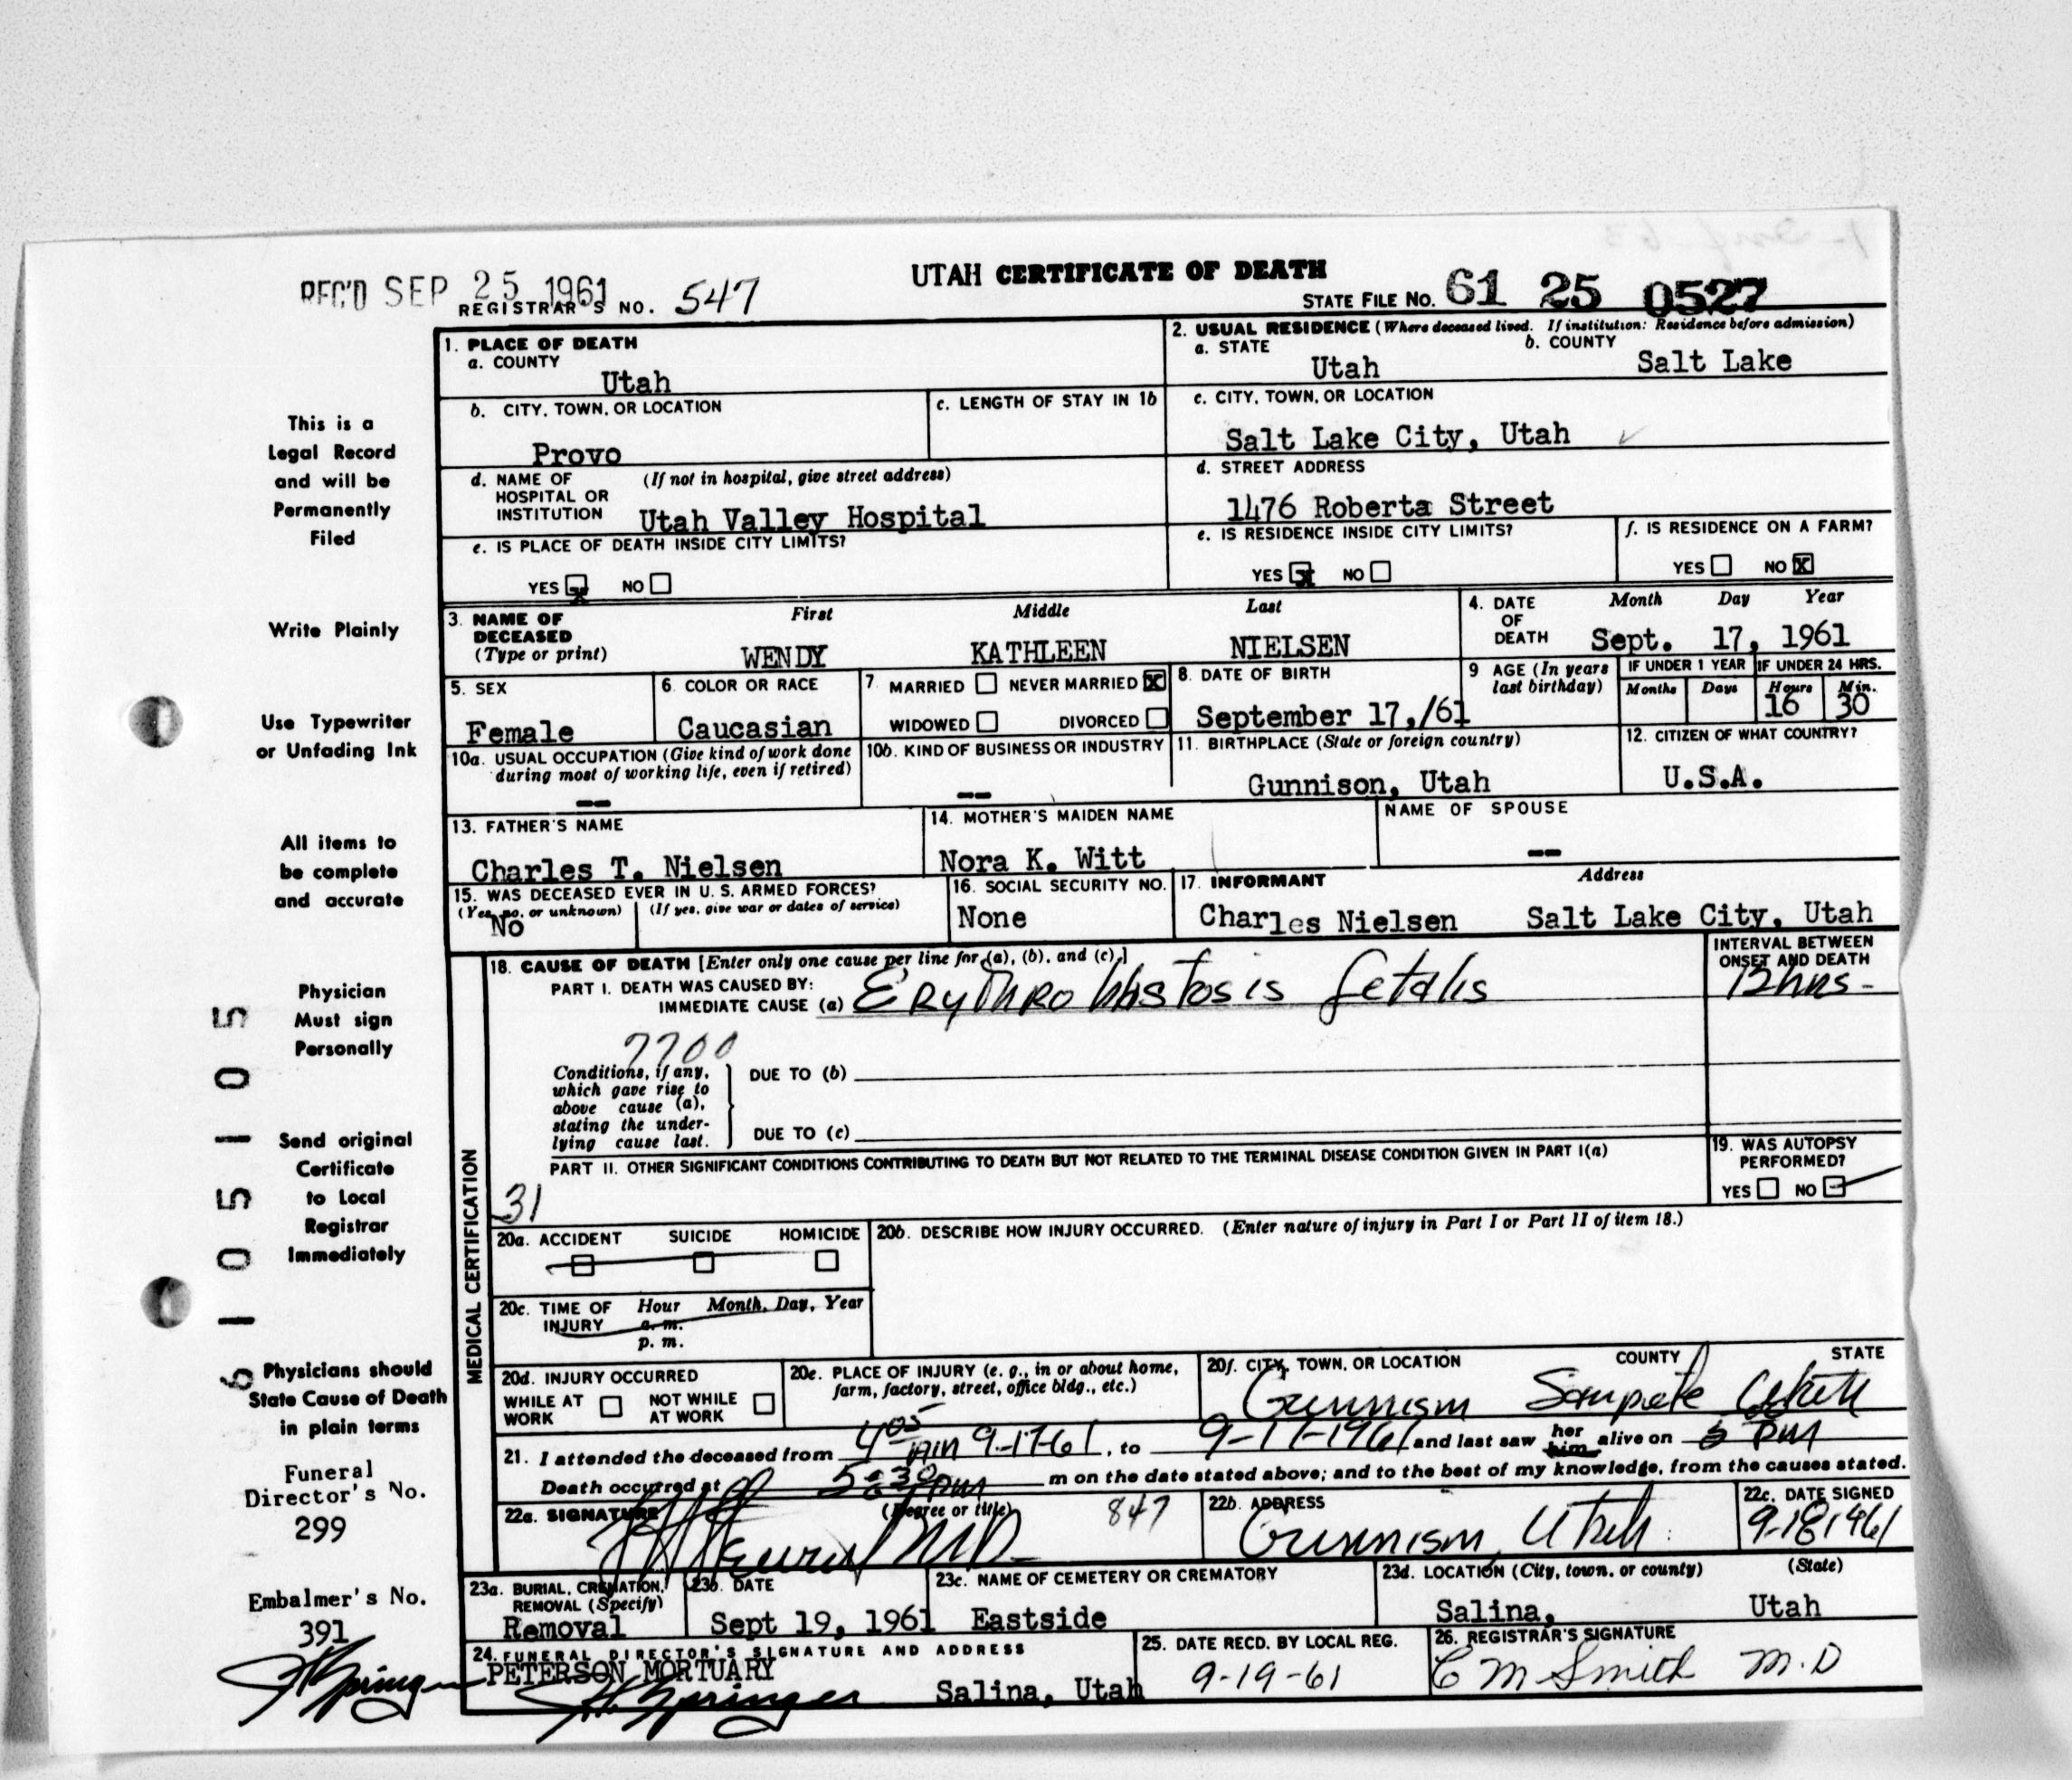 REC'D SEP 25 1961
REGISTRAR'S NO. 547
UTAH CERTIFICATE OF DEATH
STATE FILE NO. 61 25 0527
This is a
Legal Record
and will be
Permanently
Filed
Write Plainly
Use Typewriter
or Unfading Ink
All items to
be complete
and accurate
Physician
Must sign
Personally
Send original
Certificate
to Local
Registrar
Immediately
Physicians should
State Cause of Death
in plain terms
Funeral
Director's No.
299
Embalmer's No.
391
6 1 0 5 1 0 5
1. PLACE OF DEATH
a. COUNTY
Utah
b. CITY, TOWN, OR LOCATION
Provo
c. LENGTH OF STAY IN 1b
d. NAME OF HOSPITAL OR INSTITUTION (If not in hospital, give street address)
Utah Valley Hospital
e. IS PLACE OF DEATH INSIDE CITY LIMITS?
YES X NO
2. USUAL RESIDENCE (Where deceased lived. If institution: Residence before admission)
a. STATE
Utah
b. COUNTY
Salt Lake
c. CITY, TOWN, OR LOCATION
Salt Lake City, Utah
d. STREET ADDRESS
1476 Roberta Street
e. IS RESIDENCE INSIDE CITY LIMITS?
YES X NO
f. IS RESIDENCE ON A FARM?
YES NO X
3. NAME OF DECEASED (Type or print)
First Middle Last
WENDY KATHLEEN NIELSEN
4. DATE OF DEATH
Month Day Year
Sept. 17, 1961
5. SEX
Female
6. COLOR OR RACE
Caucasian
7. MARRIED NEVER MARRIED X
WIDOWED DIVORCED
8. DATE OF BIRTH
September 17,/61
9 AGE (In years last birthday)
IF UNDER 1 YEAR
Months Days
IF UNDER 24 HRS.
Hours Min.
16 30
10a. USUAL OCCUPATION (Give kind of work done during most of working life, even if retired)
--
10b. KIND OF BUSINESS OR INDUSTRY
--
11. BIRTHPLACE (State or foreign country)
Gunnison, Utah
12. CITIZEN OF WHAT COUNTRY?
U.S.A.
13. FATHER'S NAME
Charles T. Nielsen
14. MOTHER'S MAIDEN NAME
Nora K. Witt
NAME OF SPOUSE
--
15. WAS DECEASED EVER IN U.S. ARMED FORCES?
(Yes, no, or unknown) (If yes, give war or dates of service)
No
16. SOCIAL SECURITY NO.
None
17. INFORMANT Address
Charles Nielsen Salt Lake City, Utah
MEDICAL CERTIFICATION
18. CAUSE OF DEATH [Enter only one cause per line for (a), (b), and (c).]
PART I. DEATH WAS CAUSED BY:
IMMEDIATE CAUSE (a) Erythroblastosis fetalis
INTERVAL BETWEEN ONSET AND DEATH
12hrs-
7700
Conditions, if any, which gave rise to above cause (a), stating the underlying cause last.
DUE TO (b)
DUE TO (c)
PART II. OTHER SIGNIFICANT CONDITIONS CONTRIBUTING TO DEATH BUT NOT RELATED TO THE TERMINAL DISEASE CONDITION GIVEN IN PART I(a)
31
19. WAS AUTOPSY PERFORMED?
YES NO
20a. ACCIDENT SUICIDE HOMICIDE
20b. DESCRIBE HOW INJURY OCCURRED. (Enter nature of injury in Part I or Part II of item 18.)
20c. TIME OF INJURY Hour Month, Day, Year
a. m.
p. m.
20d. INJURY OCCURRED
WHILE AT WORK NOT WHILE AT WORK
20e. PLACE OF INJURY (e. g., in or about home, farm, factory, street, office bldg., etc.)
20f. CITY, TOWN, OR LOCATION COUNTY STATE
Gunnison Sanpete Utah
21. I attended the deceased from 4 05 AM 9-17-61, to 9-17-1961 and last saw her him alive on 5 PM
Death occurred at 5:30 pm m on the date stated above; and to the best of my knowledge, from the causes stated.
22a. SIGNATURE (Degree or title)
M.D. 847
22b. ADDRESS
Gunnison, Utah
22c. DATE SIGNED
9-18-1961
23a. BURIAL, CREMATION, REMOVAL (Specify)
Removal
23b. DATE
Sept 19, 1961
23c. NAME OF CEMETERY OR CREMATORY
Eastside
23d. LOCATION (City, town, or county) (State)
Salina, Utah
24. FUNERAL DIRECTOR'S SIGNATURE AND ADDRESS
PETERSON MORTUARY
Springer Salina, Utah
25. DATE RECD. BY LOCAL REG.
9-19-61
26. REGISTRAR'S SIGNATURE
C M Smith M.D